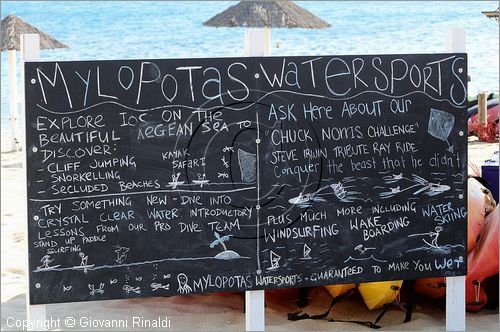 MYLOPOTAS WATERSPORTS
EXPLORE IOS ON THE
BEAUTIFUL AEGEAN SEA TO
DISCOVER:
- CLIFF JUMPING
- SNORKELLING
- SECLUDED BEACHES
KAYAK
SAFARI
TRY SOMETHING NEW - DIVE INTO
CRYSTAL CLEAR WATER INTRODUCTORY
LESSONS FROM OUR PRO DIVE TEAM
STAND UP PADDLE
SURFING
ASK HERE ABOUT OUR
"CHUCK NORRIS CHALLENGE"
"STEVE IRWIN TRIBUTE RAY RIDE"
Conquer the beast that he didn't
PLUS MUCH MORE INCLUDING WATER
SKIING
WINDSURFING WAKE
BOARDING
MYLOPOTAS WATERSPORTS - GUARANTEED TO MAKE YOU WET
Copyright © Giovanni Rinaldi